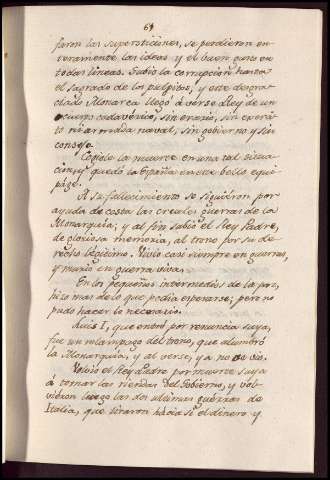 64
faron las supersticiones, se perdieron en-
teramente las ideas y el buen gusto en
todas lineas. Subió la corrupcion hasta
el sagrado de los pulpitos, y este desgra-
ciado Monarca llegó à verse Rey de un
cuerpo cadavérico, sin erario, sin exerci-
to ni armada naval, sin gobierno y sin
consejo.
Cogiole la muerte en una tal situa-
cion, y quedó la España en este bello equi-
page.
A su fallecimiento se siguieron por
ayuda de costa las crueles guerras de la
Monarquía; y al fin subió el Rey Padre,
de gloriosa memoria, al trono por su de-
recho legitimo. Vivió casi siempre en guerras,
y murio en guerra viva.
En los pequeños intermedios de la paz,
hizo mas de lo que podia esperarse; pero no
pudo hacer lo necesario.
Luis I, que entró por renuncia suya,
fue un relampago del trono, que alumbró
la Monarquía, y al verse, ya no se vio.
Volvió el Rey Padre por muerte suya
à tomar las riendas del Gobierno, y vol-
vieron luego las dos ultimas guerras de
Italia, que tiraron hacia sí el dinero y